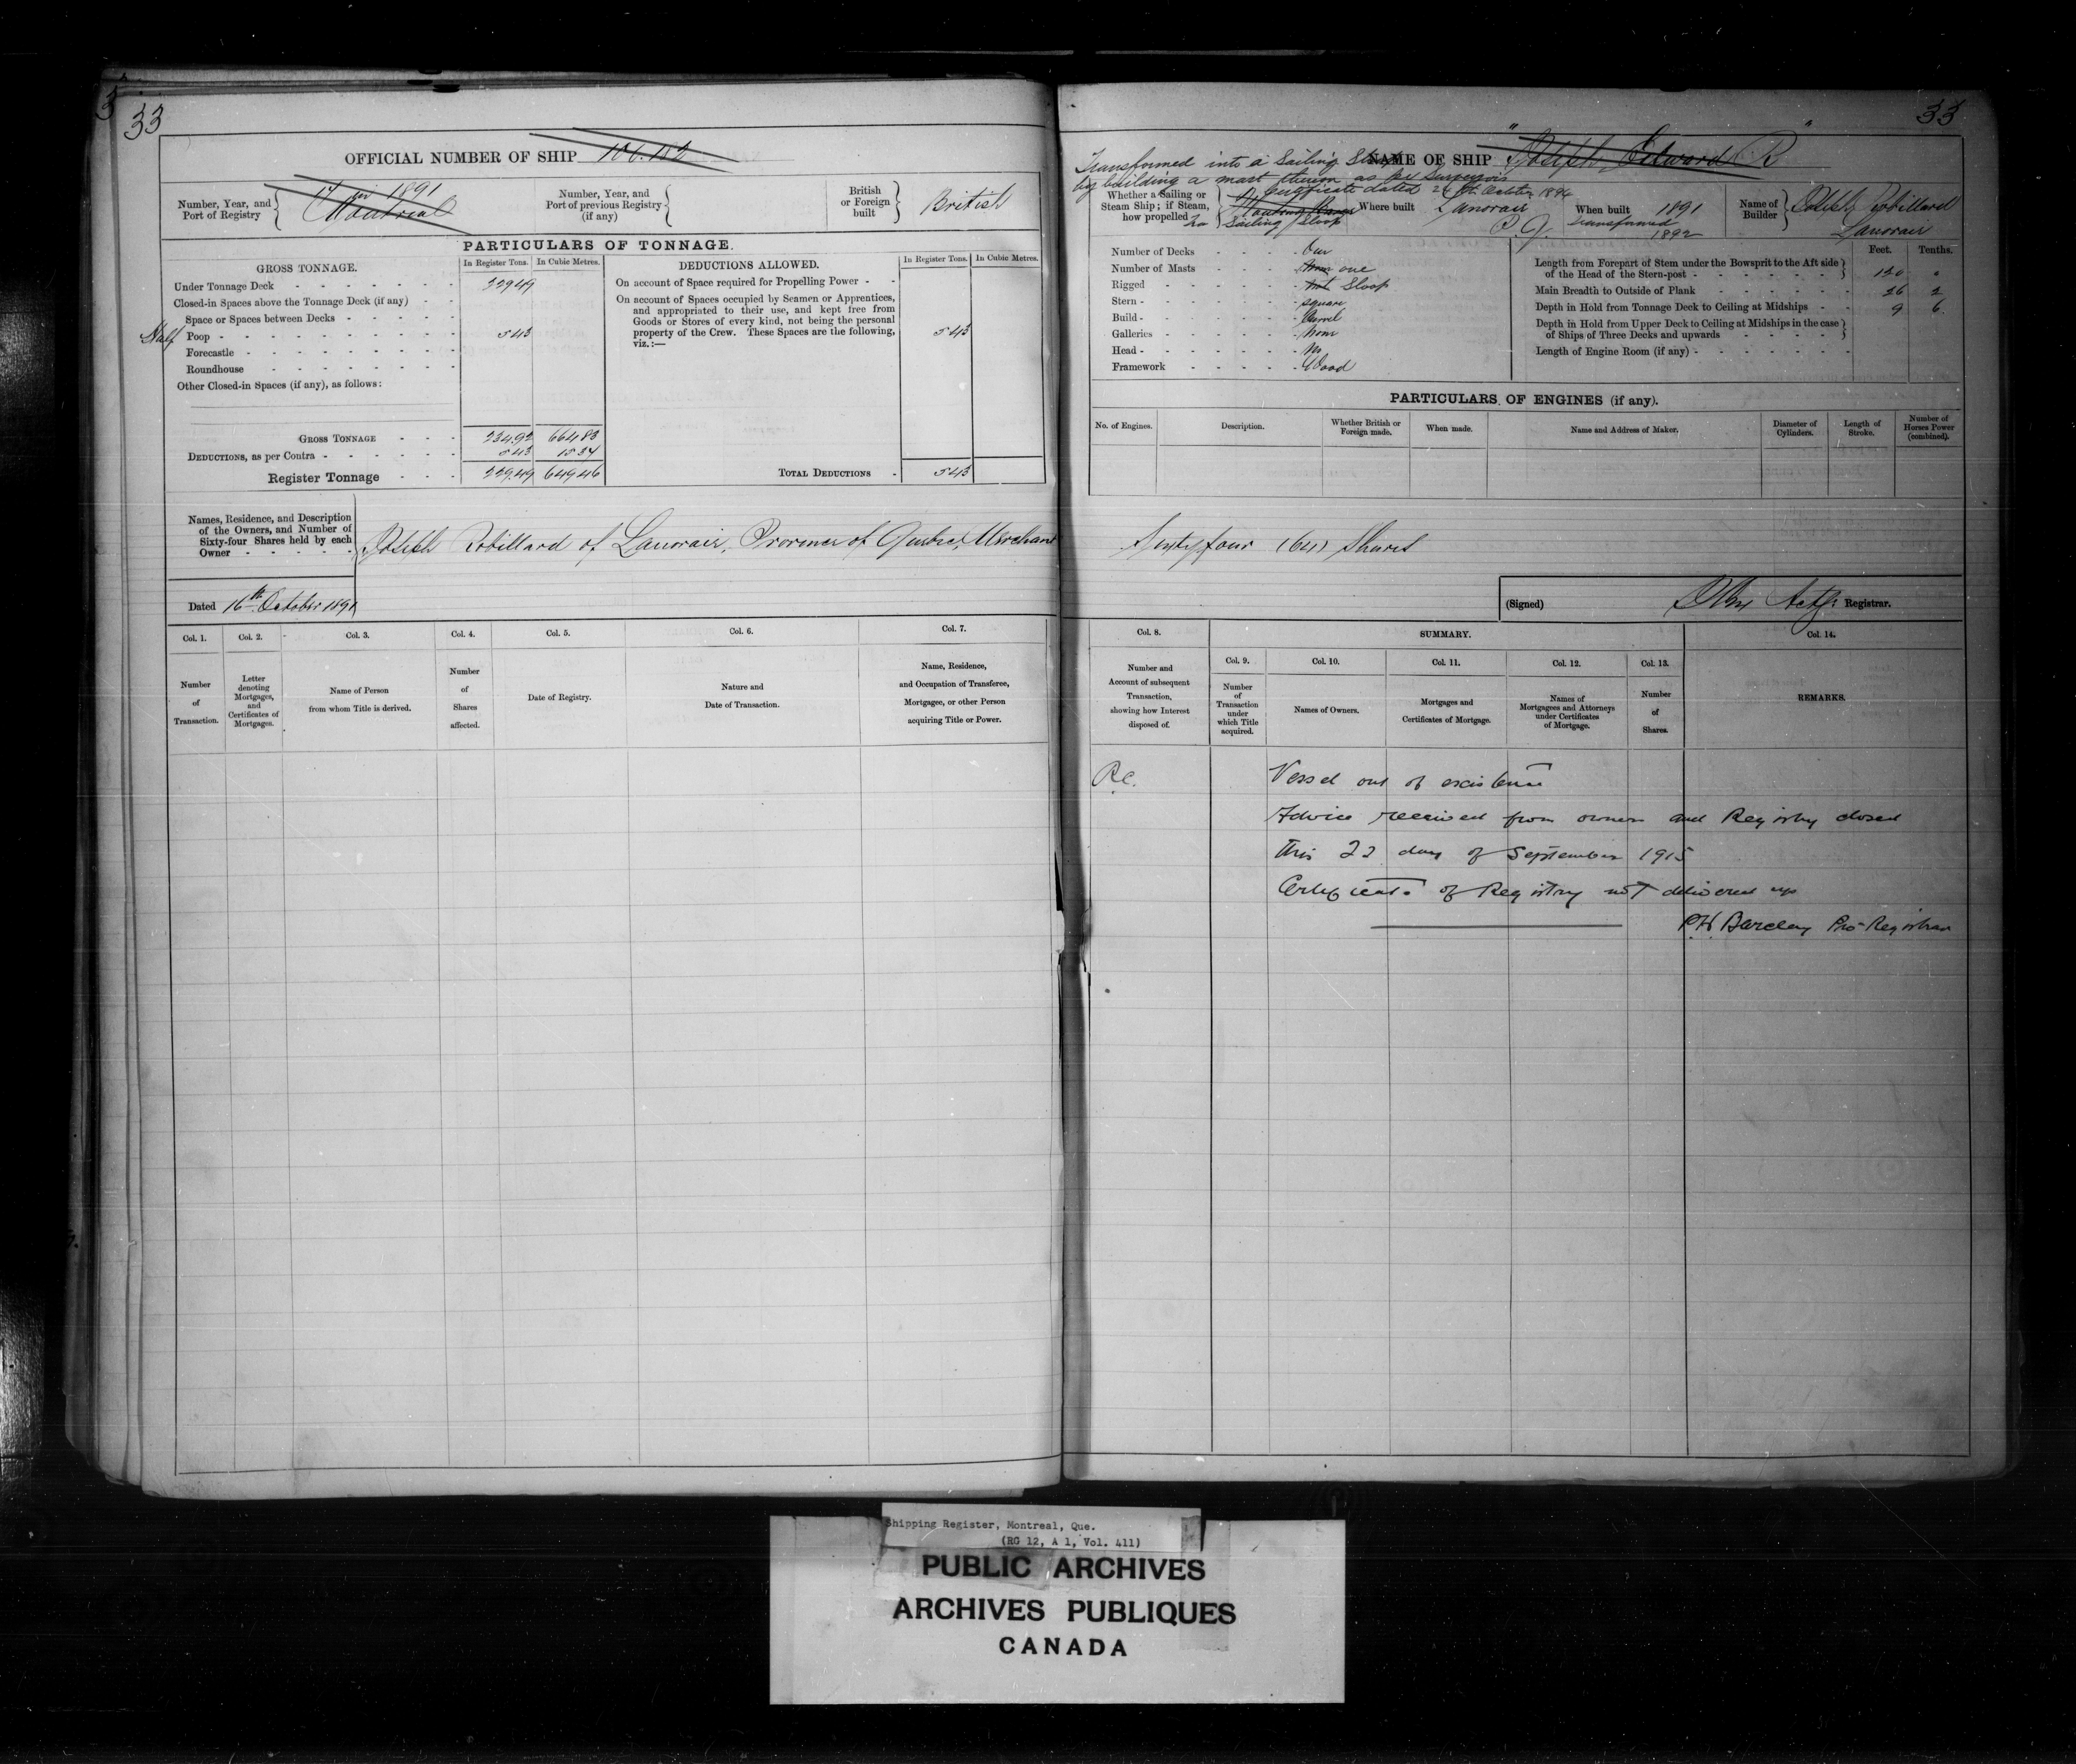 33
OFFICIAL NUMBER OF SHIP 100.152
Number, Year, and
Port of Registry
in 1891
Montreal
Number, Year, and
Port of previous Registry
(if any)
British
or Foreign
built
British
PARTICULARS OF TONNAGE.
GROSS TONNAGE.
In Register Tons.
In Cubic Metres.
Under Tonnage Deck 229.49
Closed-in Spaces above the Tonnage Deck (if any)
Space or Spaces between Decks
Half Poop 5.43
Forecastle
Roundhouse
Other Closed-in Spaces (if any), as follows:
GROSS TONNAGE 234.92 664.83
DEDUCTIONS, as per Contra 5.43 15.37
Register Tonnage 229.49 649.46
DEDUCTIONS ALLOWED.
In Register Tons.
In Cubic Metres.
On account of Space required for Propelling Power
On account of Spaces occupied by Seamen or Apprentices,
and appropriated to their use, and kept free from
Goods or Stores of every kind, not being the personal
property of the Crew. These Spaces are the following,
viz.:—
5.43
TOTAL DEDUCTIONS 5.43
Names, Residence, and Description
of the Owners, and Number of
Sixty-four Shares held by each
Owner
Joseph Robillard of Lanoraie, Province of Quebec, Merchant
Dated 16th October 1891
Col. 1.
Number
of
Transaction.
Col. 2.
Letter
denoting
Mortgages,
and
Certificates of
Mortgages.
Col. 3.
Name of Person
from whom Title is derived.
Col. 4.
Number
of
Shares
affected.
Col. 5.
Date of Registry.
Col. 6.
Nature and
Date of Transaction.
Col. 7.
Name, Residence,
and Occupation of Transferee,
Mortgagee, or other Person
acquiring Title or Power.
33
NAME OF SHIP "Joseph Edward R"
Transformed into a Sailing Sloop
by building a mast thereon as per Surveyors
Certificate dated October
Whether a Sailing or
Steam Ship; if Steam,
how propelled
Sailing Sloop
Where built
Lanoraie
P.Q.
When built 1891
transformed
1892
Name of
Builder
Joseph Robillard
Lanoraie
Number of Decks One
Number of Masts None one
Rigged Not Sloop
Stern square
Build Carvel
Galleries None
Head No
Framework Wood
Feet. Tenths.
Length from Forepart of Stem under the Bowsprit to the Aft side
of the Head of the Stern-post 120 "
Main Breadth to Outside of Plank 26 2
Depth in Hold from Tonnage Deck to Ceiling at Midships 9 6
Depth in Hold from Upper Deck to Ceiling at Midships in the case
of Ships of Three Decks and upwards
Length of Engine Room (if any)
PARTICULARS OF ENGINES (if any).
No. of Engines.
Description.
Whether British or
Foreign made.
When made.
Name and Address of Maker.
Diameter of
Cylinders.
Length of
Stroke.
Number of
Horses Power
(combined).
Sixty four (64) Shares
(Signed) Actg. Registrar.
Col. 8.
Number and
Account of subsequent
Transaction,
showing how Interest
disposed of.
SUMMARY.
Col. 9.
Number
of
Transaction
under
which Title
acquired.
Col. 10.
Names of Owners.
Col. 11.
Mortgages and
Certificates of Mortgage.
Col. 12.
Names of
Mortgagees and Attorneys
under Certificates
of Mortgage.
Col. 13.
Number
of
Shares.
Col. 14.
REMARKS.
R.C.
Vessel out of existence
Advice received from owner and Registry closed
this 22 day of September 1915
Certificate of Registry not delivered up
P.H. Barclay Pro-Registrar
Shipping Register, Montreal, Que.
(RG 12, A 1, Vol. 411)
PUBLIC ARCHIVES
ARCHIVES PUBLIQUES
CANADA